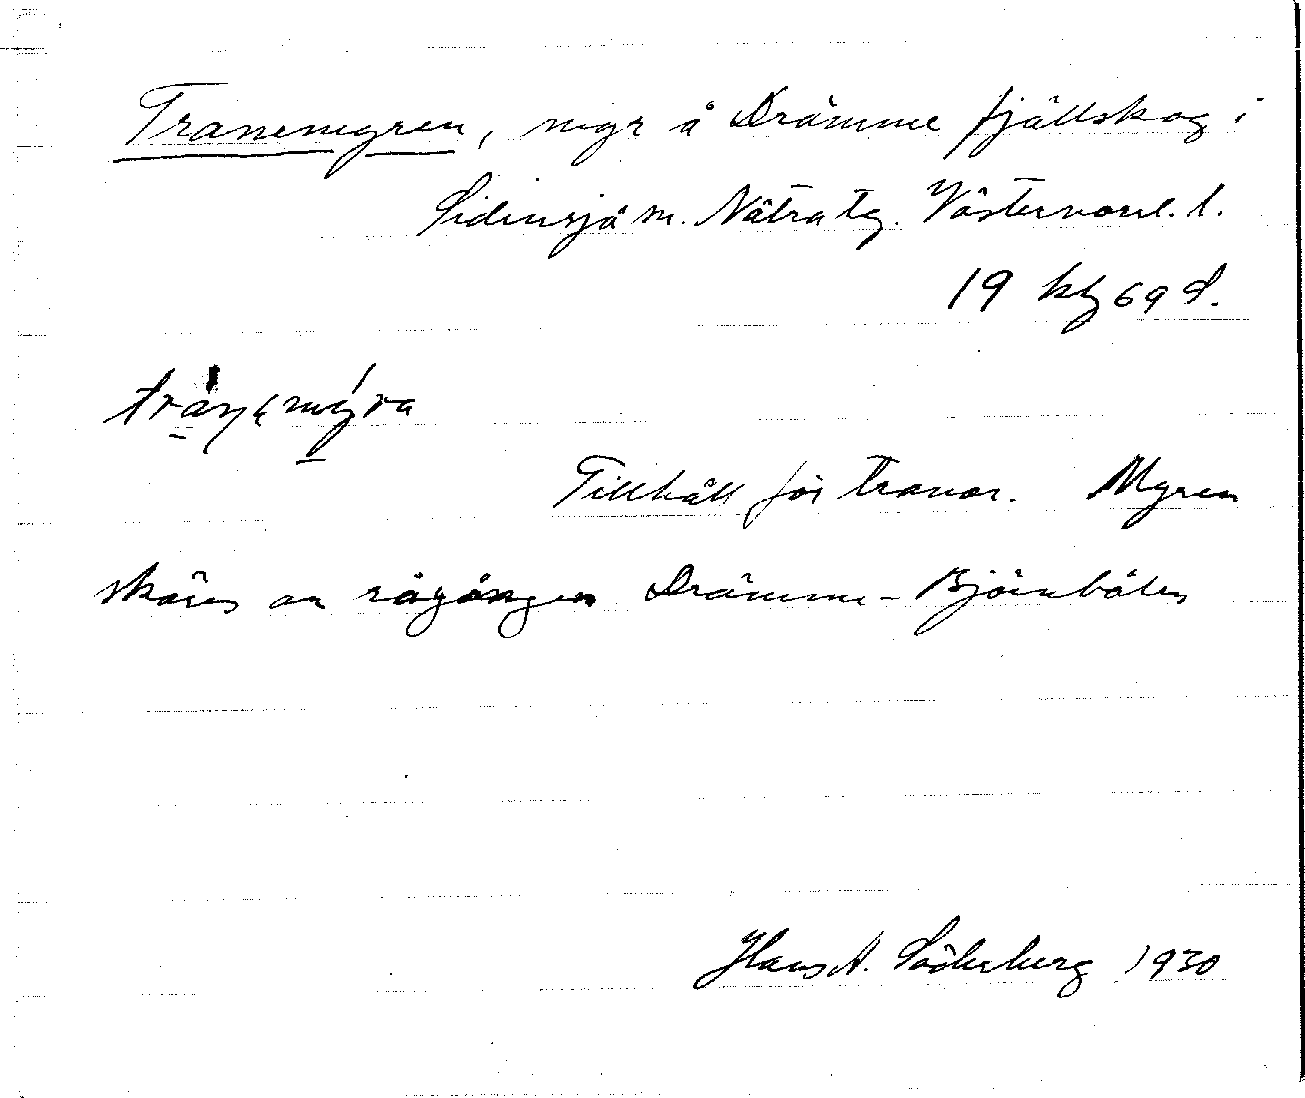 Tranemyren, myr å Drömme fjällskog i
Sidensjö sn. Nätra tg. Västernorrl. l.
19 kbg 69 S.
Tillhåll för tranor. Myren
skäres av rågången Drömme - Björnböle
Hans A. Söderberg 1930